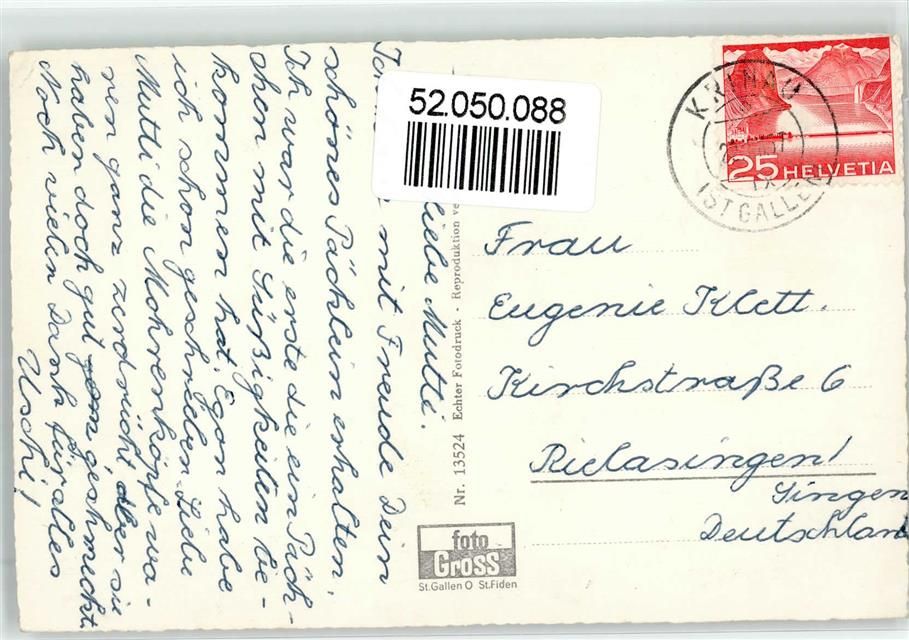 Liebe Mutti.
mit Freude Dein
schönes Päcklein erhalten.
Ich war die erste die ein Päck-
chen mit Süßigkeiten be-
kommen hat. Egon habe
ich schon geschrieben. Liebe
Mutti die Mohrenköpfe wa-
ren ganz zerdrückt aber sie
haben doch gut geschmeckt.
Noch vielen Dank für alles
Uschi!
52.050.088
Nr. 13524 Echter Fotodruck - Reproduktion
foto
Gross
St.Gallen O St.Fiden
KRINAU
(ST GALLEN)
25 HELVETIA
Frau
Eugenie Klett.
Kirchstraße 6
Rielasingen!
Singen
Deutschland